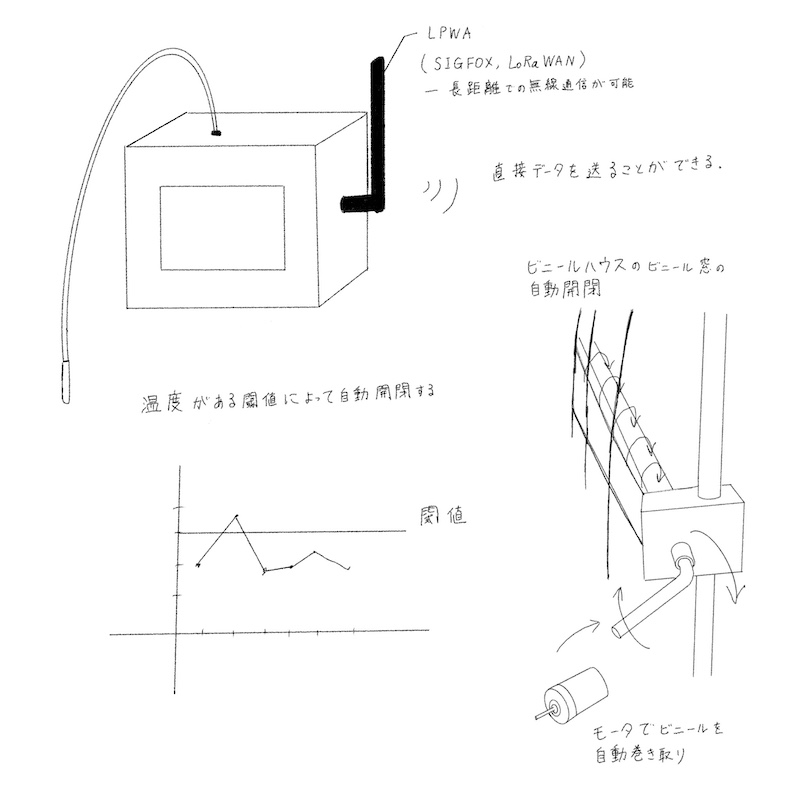 LPWA
(SIGFOX, LoRaWAN)
― 長距離での無線通信が可能
直接データを送ることができる.
ビニールハウスのビニール窓の
自動開閉
温度がある閾値によって自動開閉する
閾値
モータでビニールを
自動巻き取り